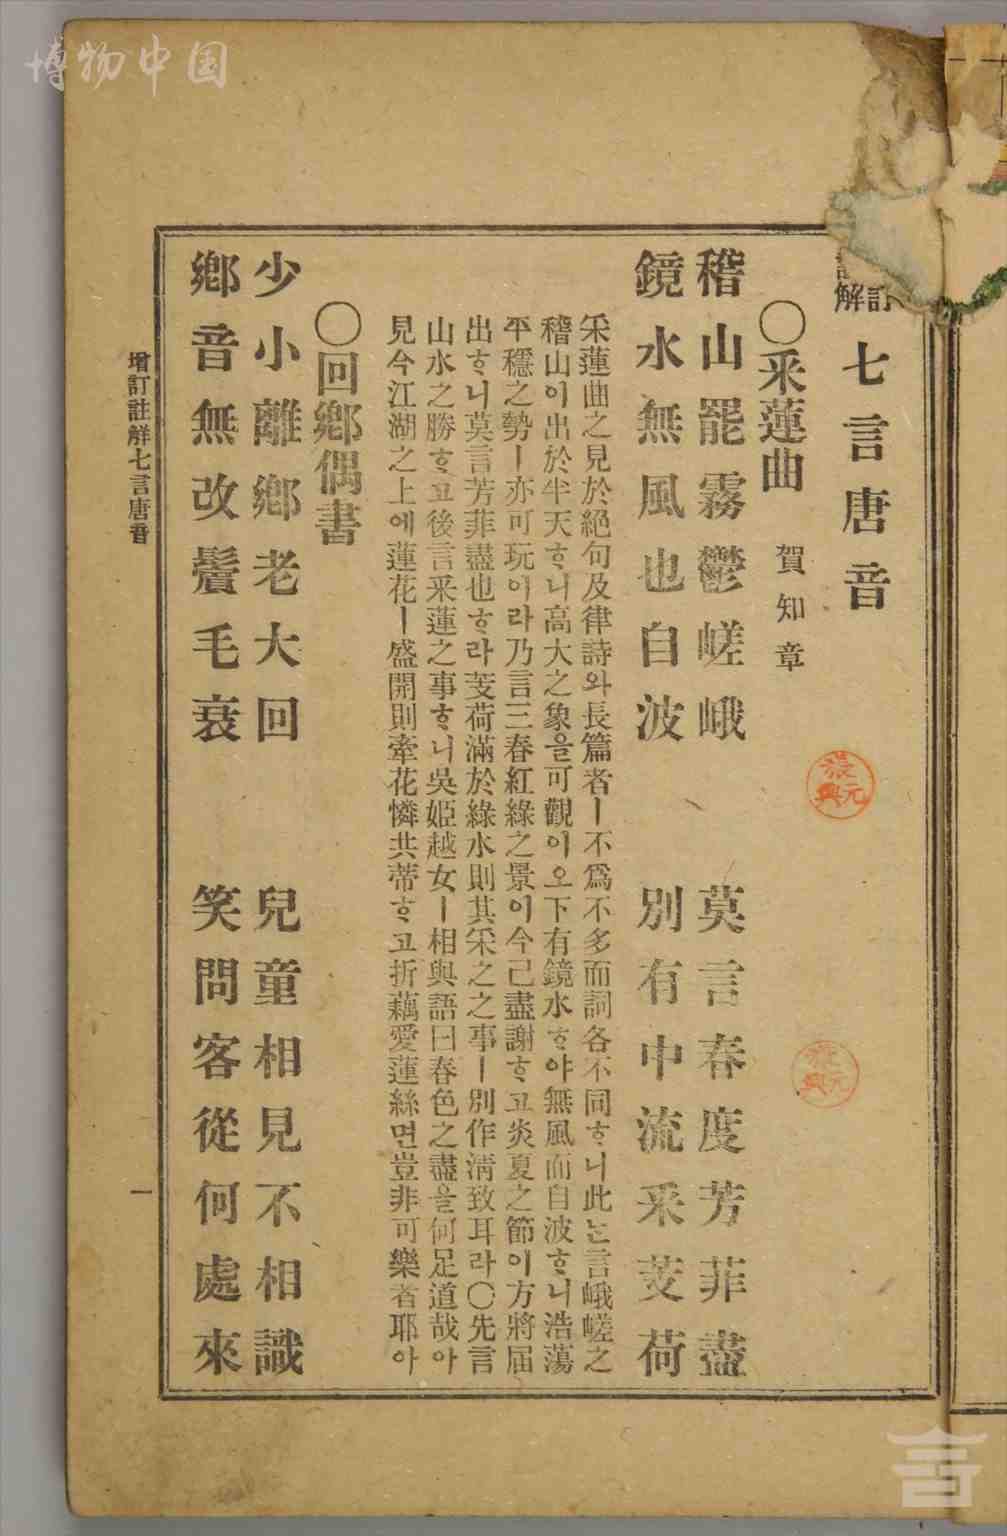 博物中国
訂
註解
七言唐音
○采蓮曲 賀知章
稽山罷霧鬱嵯峨 莫言春度芳菲盡
鏡水無風也自波 別有中流采芰荷
采蓮曲之見於絕句及律詩와長篇者ㅣ不爲不多而詞各不同ᄒᆞ니此ᄂᆞᆫ言峨嵯之
稽山이出於半天ᄒᆞ니高大之象을可觀이오下有鏡水ᄒᆞ야無風而自波ᄒᆞ니浩蕩
平穩之勢ㅣ亦可玩이라乃言三春紅綠之景이今已盡謝ᄒᆞ고炎夏之節이方將届
出ᄒᆞ니莫言芳菲盡也ᄒᆞ라芰荷滿於綠水則其采之之事ㅣ別作淸致耳라○先言
山水之勝ᄒᆞ고後言采蓮之事ᄒᆞ니吳姬越女ㅣ相與語曰春色之盡을何足道哉아
見今江湖之上에蓮花ㅣ盛開則牽花憐共蒂ᄒᆞ고折藕愛蓮絲면豈非可樂者耶아
○回鄕偶書
少小離鄕老大回 兒童相見不相識
鄕音無改鬢毛衰 笑問客從何處來
增訂註解七言唐音
一
張元興
張元興